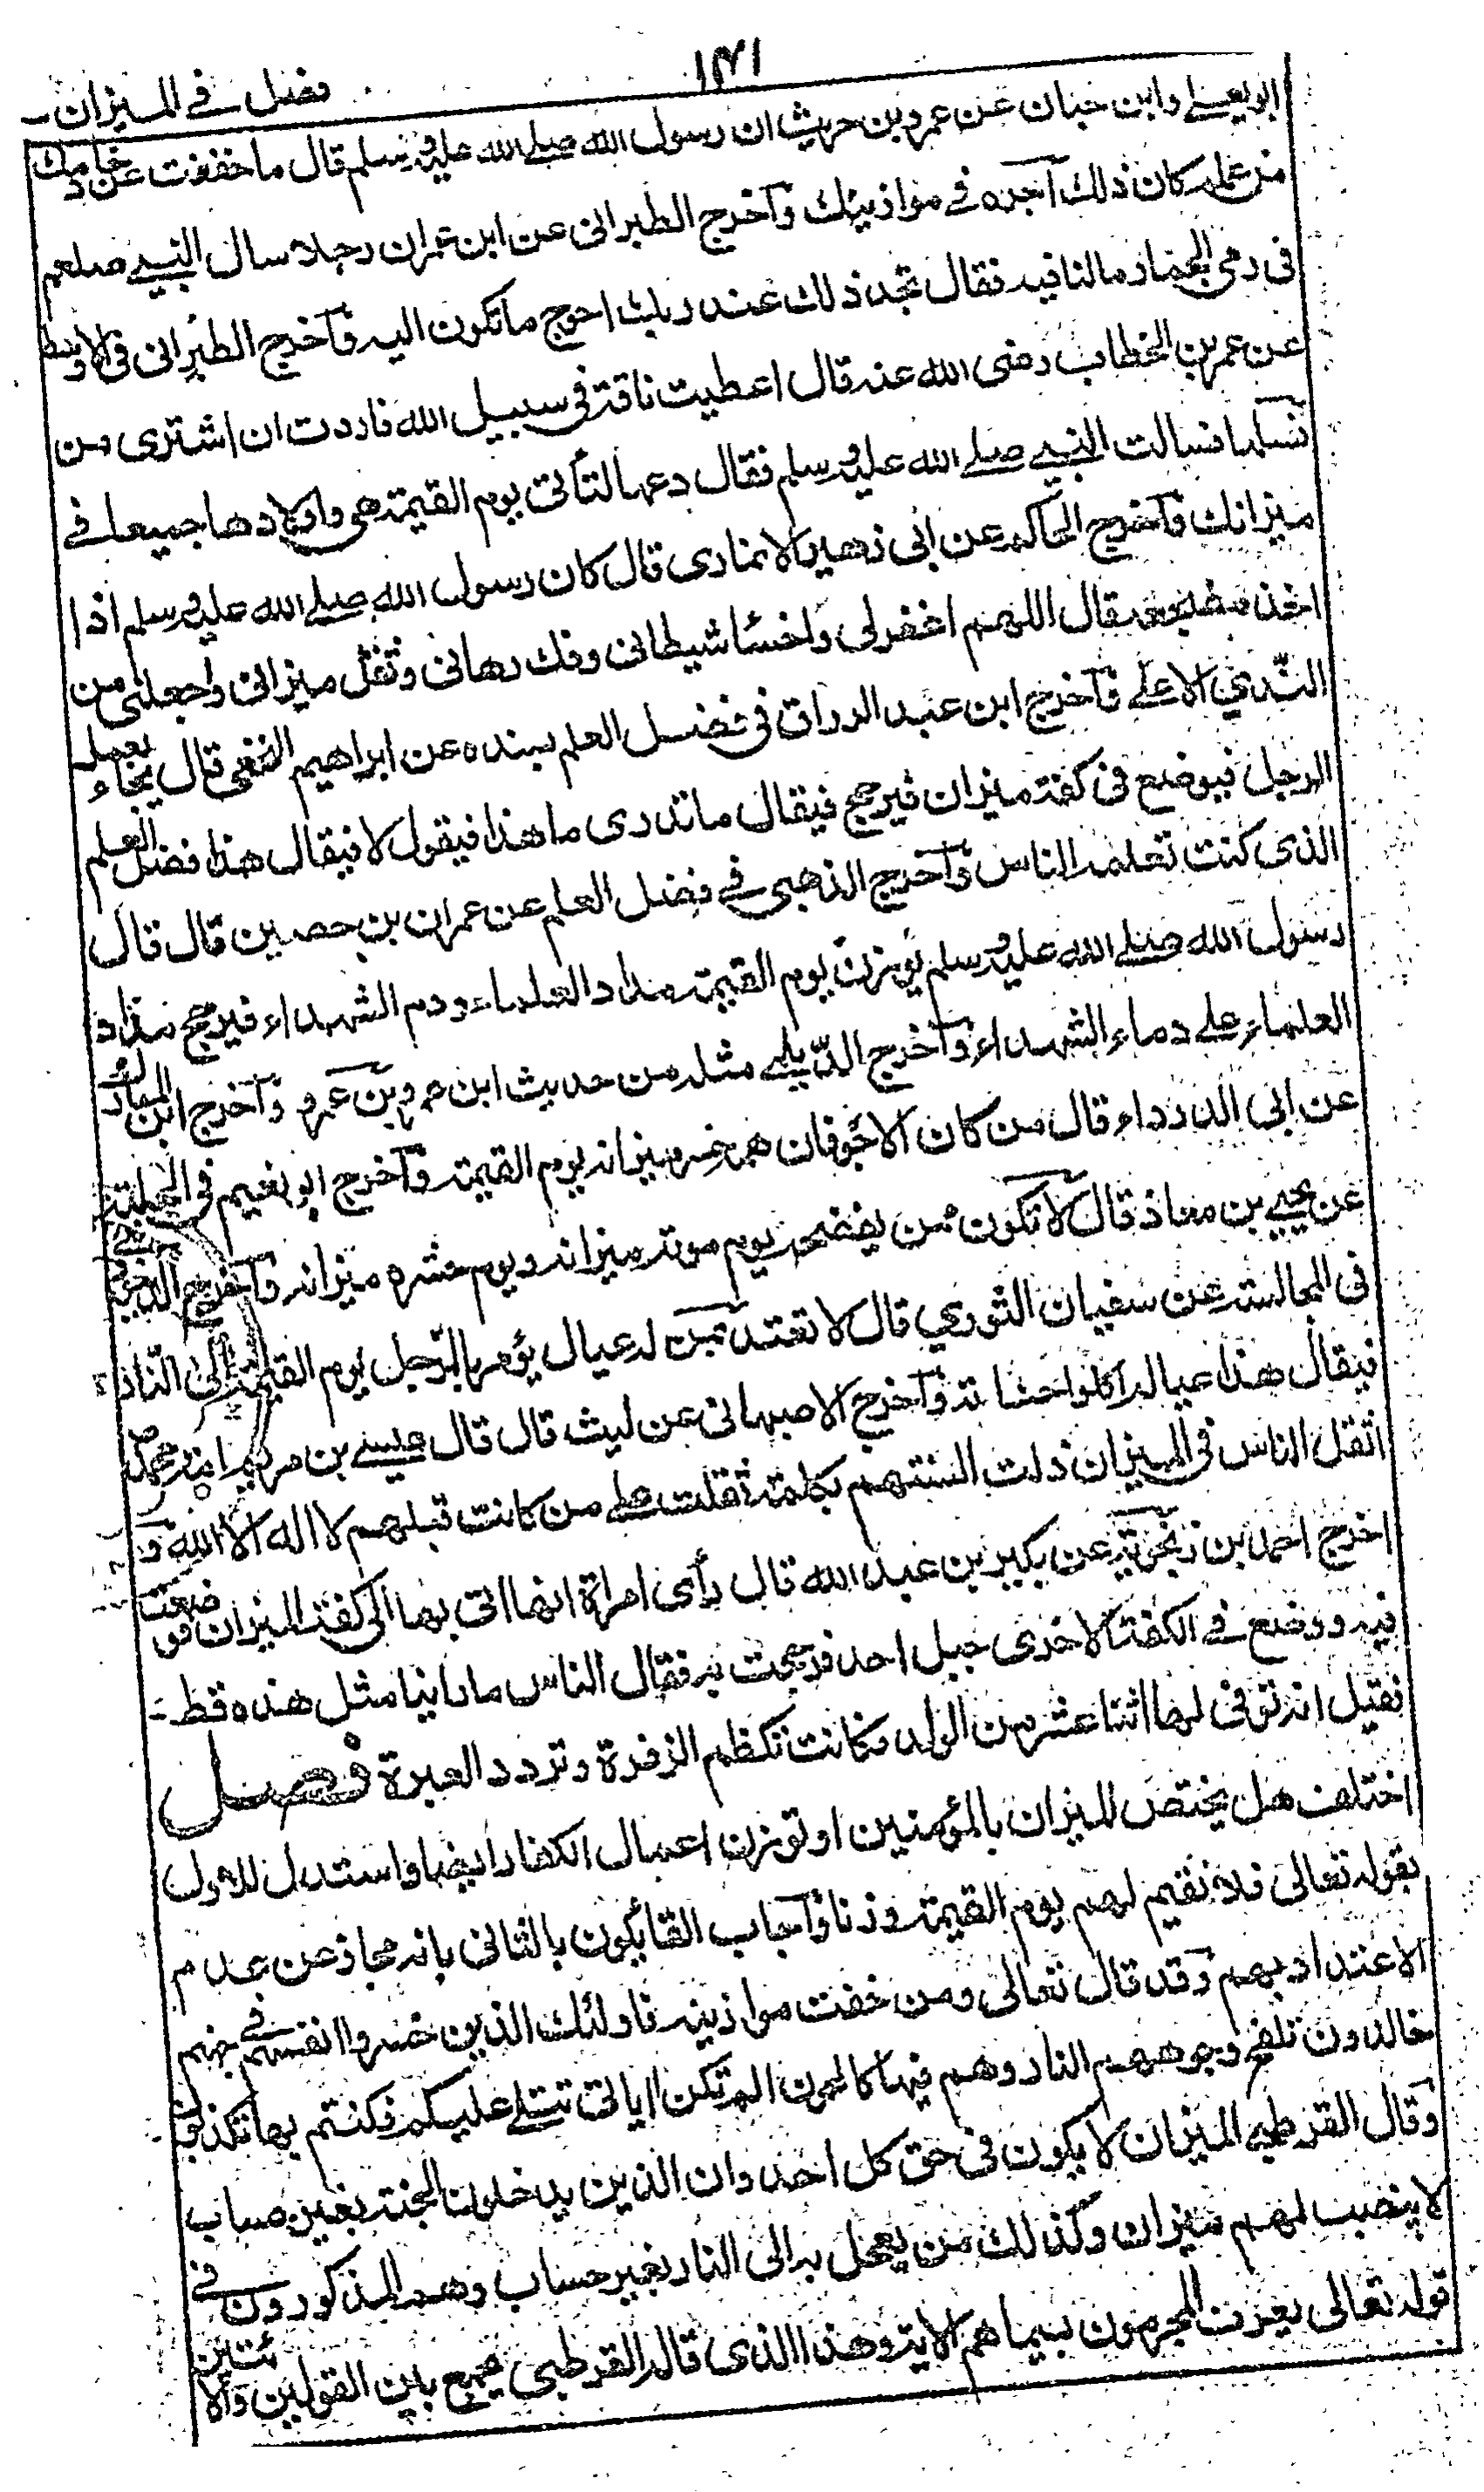 ١٣١
فصل فے المیزان
ابو یعلے وابن حبان عن عمرو بن حریث ان رسول اللہ صلے اللہ علیہ وسلم قال ما خففت عن خادمك
من عملہ كان ذلك آجرہ فے موازینك وآخرج الطبرانی عن ابن عمران رجلا سال النبے صلعم
فی رمی الجمار مالنا فیہ فقال تجد ذلك عند ربك احوج ماتكون الیہ وآخرج الطبرانی فی الاوسط
عن عمر بن الخطاب رضی اللہ عنہ قال اعطیت ناقة فی سبیل اللہ فاردت ان اشتری من
نسلہا فسالت النبے صلے اللہ علیہ وسلم فقال دعہا لتأتی یوم القیمة ھی واولادھا جمیعا فے
میزانك وآخرج الحاكم عن ابی زھیر الانماری قال كان رسول اللہ صلے اللہ علیہ وسلم اذا
اخذ مضجعہ قال اللہم اغفرلی واخسأ شیطانی وفك رھانی وثقل میزانی واجعلنی من
الندی الاعلے وآخرج ابن عبد الرزاق فی فضل العلم بسندہ عن ابراھیم النخعی قال یجاء بعمل
الرجل فیوضع فی كفة میزان فیرجح فیقال ماتدری ما ھذا فیقول لا فیقال ھذا فضل العلم
الذی كنت تعلمہ الناس وآخرج الذھبی فے فضل العلم عن عمران بن حصین قال قال
رسول اللہ صلے اللہ علیہ وسلم یوزن یوم القیمة مداد العلماء ودم الشہداء فیرجح مداد
العلماء علے دماء الشہداء وآخرج الدیلمے مثلہ من حدیث ابن عمر وبن عمرو وآخرج ابن المبارك
عن ابی الدرداء قال من كان الاجوفان ھمہ خسر میزانہ یوم القیمة وآخرج ابو نعیم فی الحلیة
عن یحیے بن معاذ قال لاتكون ممن یفضحہ یوم موتہ میزانہ ویوم حشرہ میزانہ وآخرج الدینوری
فی المجالسة عن سفیان الثوری قال لا تعتد بمن لہ عیال یؤمر بالرجل یوم القیمة الی النار
فیقال ھذا عیالہ اكلوا حسناتہ وآخرج الاصبہانی عن لیث قال قال عیسے بن مریم امة محمد
اثقل الناس فی المیزان ذلت السنتہم بكلمة ثقلت علے من كانت قبلہم لا الہ الا اللہ و
اخرج احمد بن زنجویة عن بكیر بن عبد اللہ قال رأی امراة انہا اتی بہا الی كفة المیزان فوضعت
فیہ ووضع فے الكفة الاخری جبل احد فرجحت بہ فقال الناس مارأینا مثل ھذہ قط
فقیل انہ توفی لہا اثنا عشر من الولد فكانت تكظم الزفرة وتردد العبرة فصل
اختلف ھل یختص المیزان بالمؤمنین او توزن اعمال الكفار ایضا واستدل للاول
بقولہ تعالی فلا نقیم لہم یوم القیمة وزنا وآجاب القائلون بالثانی بانہ مجاز عن عدم
الاعتداد بہم وقد قال تعالی ومن خفت موازینہ فاولئك الذین خسروا انفسہم فے جہنم
خالدون تلفح وجوھہم النار وھم فیہا كالحون الم تكن ایاتی تتلے علیكم فكنتم بہا تكذبون
وقال القرطبے المیزان لا یكون فی حق كل احد وان الذین یدخلون الجنة بغیر حساب
لا ینصب لہم میزان وكذلك من یعجل بہ الی النار بغیر حساب وھم المذكورون فے
قولہ تعالی یعرف المجرمون بسیماھم الایة وھذا الذی قالہ القرطبی جمع بین القولین والا